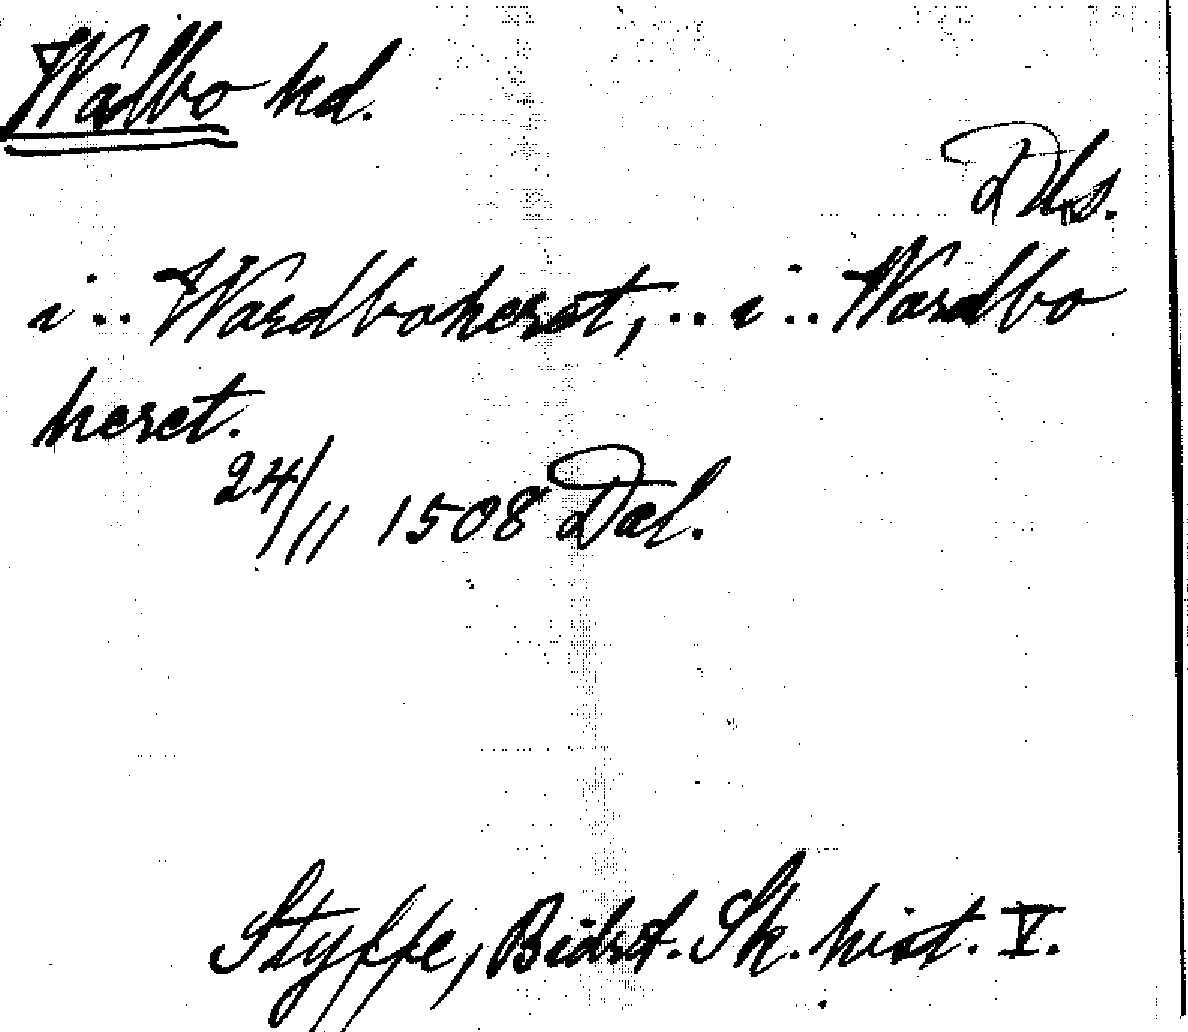 Walbo hd.
Dls.
i .. Wardboheret, .. i .. Wardbo
heret.
24/11 1508 Dal.
Styffe, Bidr. t. Sk. hist. V.